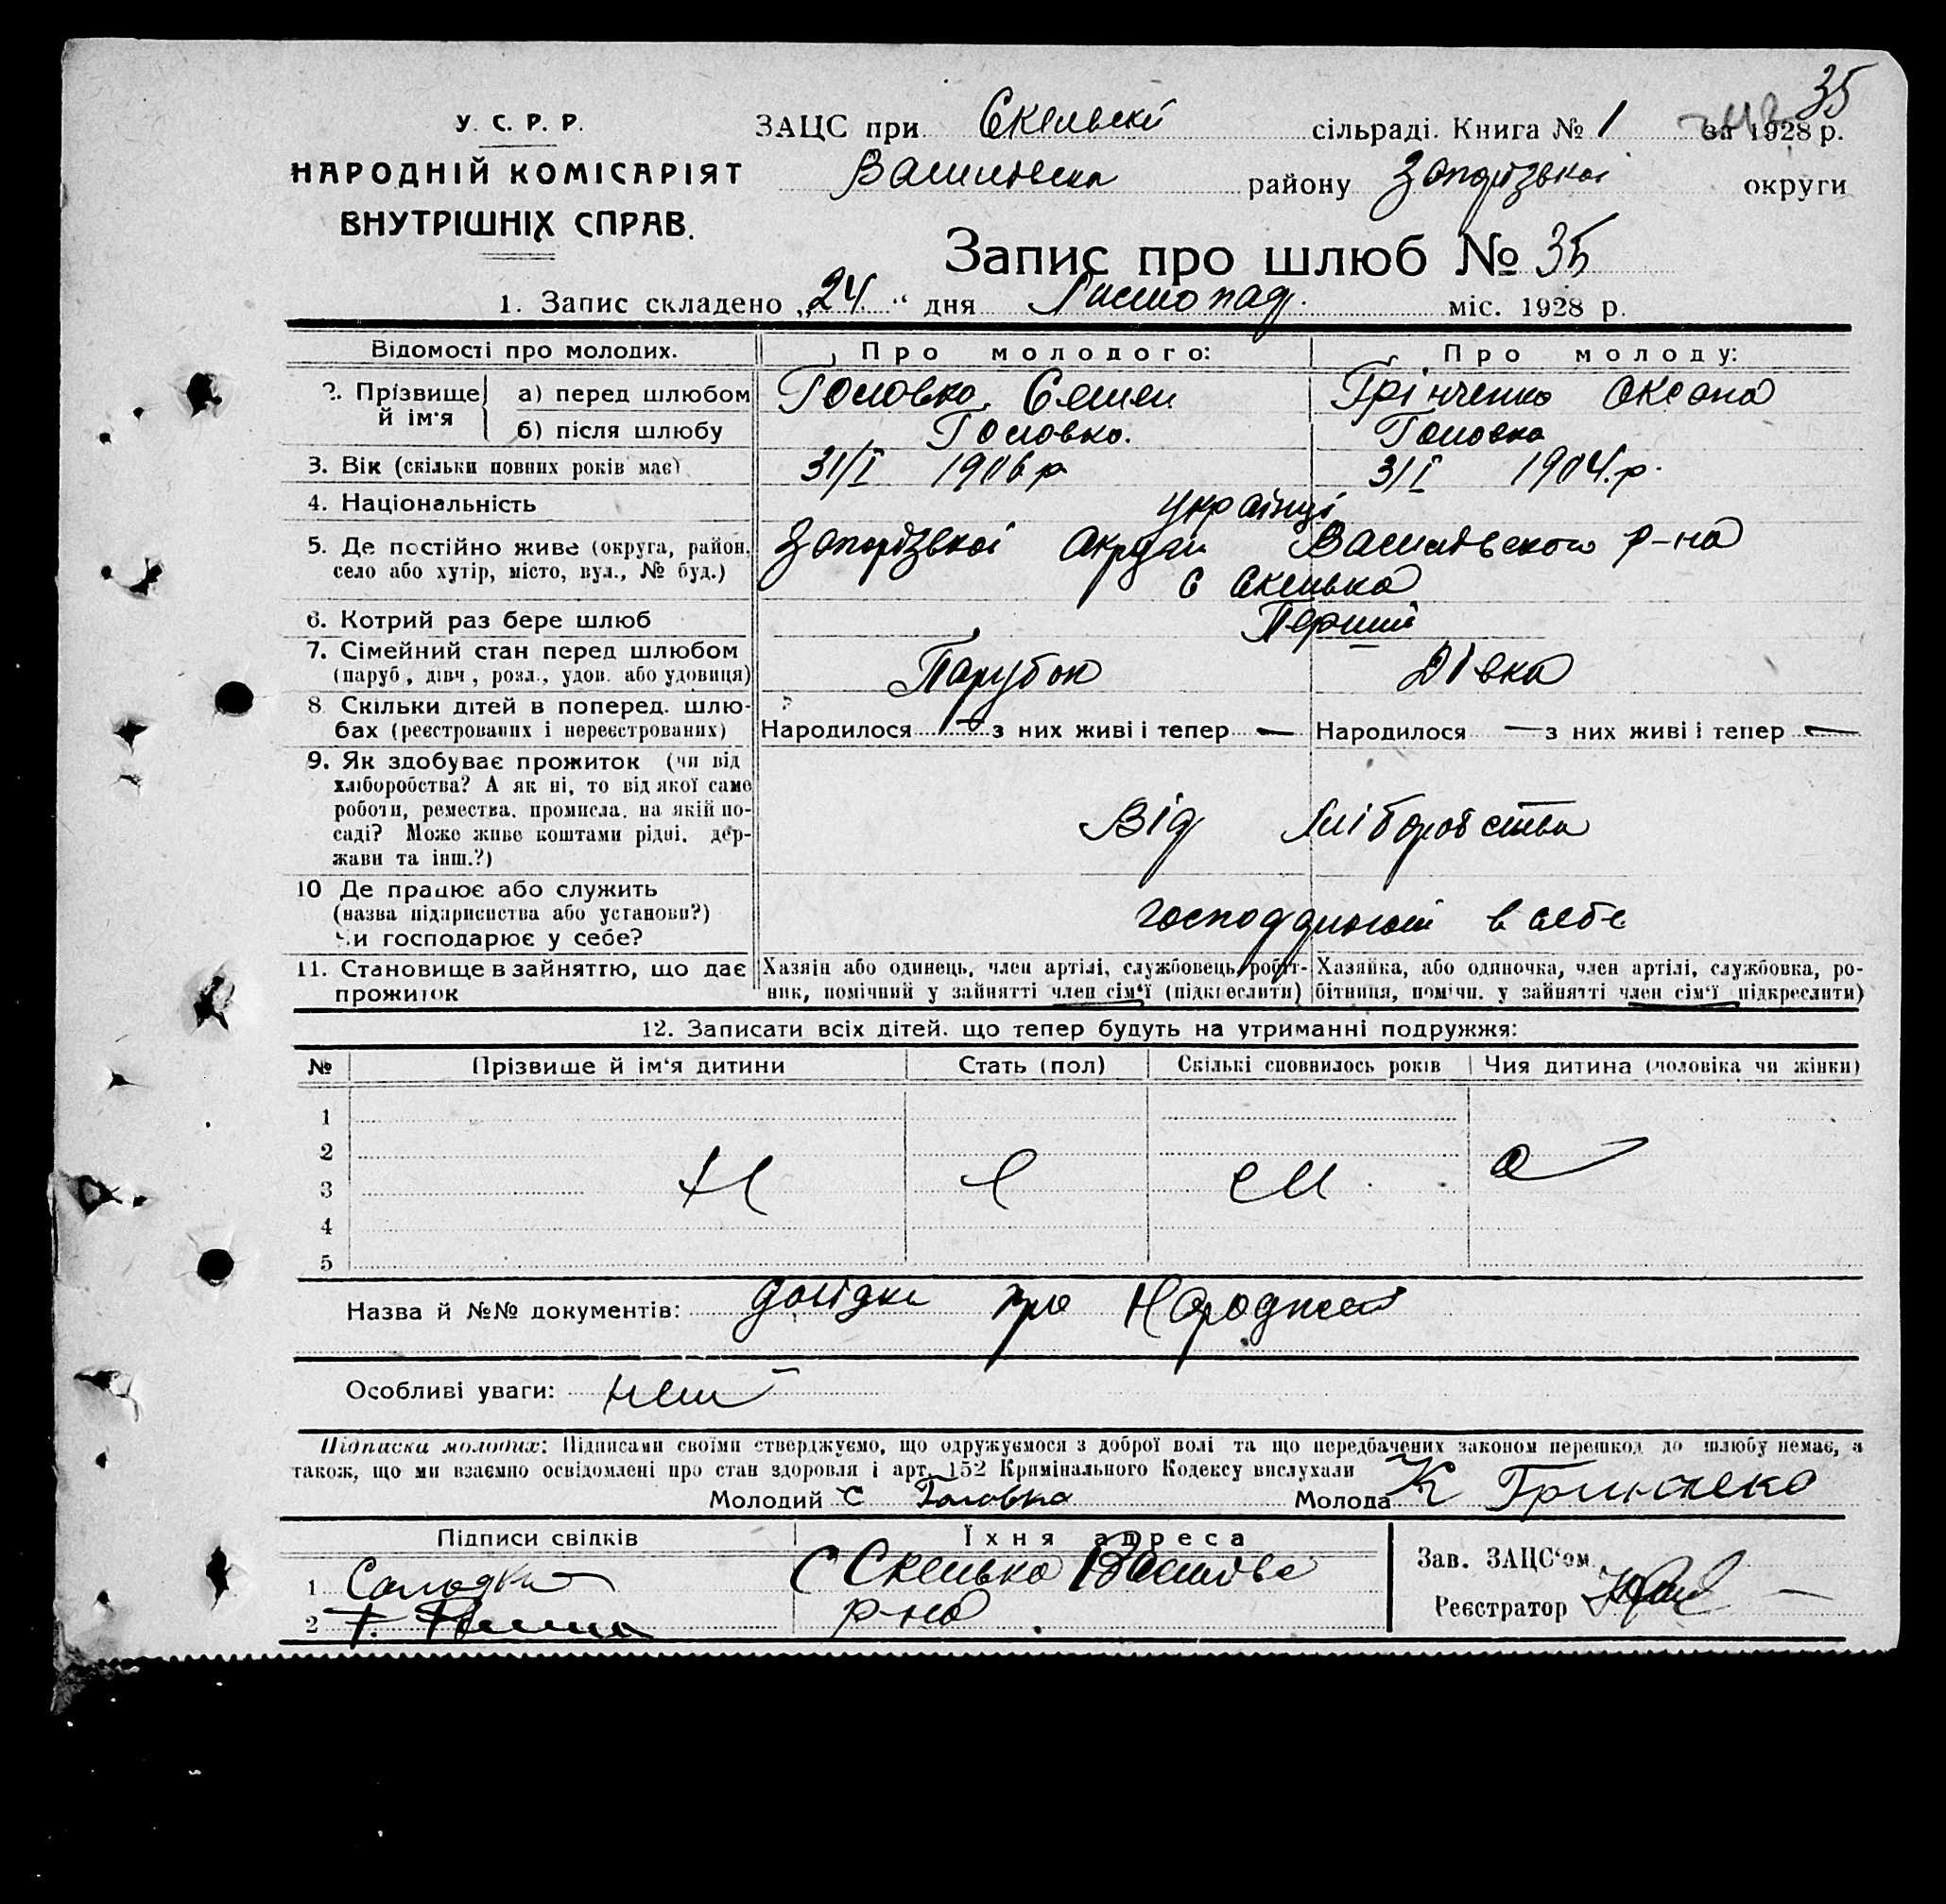 35
У. С. Р. Р.
НАРОДНІЙ КОМІСАРІЯТ
ВНУТРІШНІХ СПРАВ.
ЗАЦС при Скельскі сільраді. Книга № 1 за 1928 р.
Василівска району Запорізькоі округи
Запис про шлюб № 35
1. Запис складено „24“ дня Листопад. міс. 1928 р.
Відомості про молодих. Про молодого: Про молоду:
2. Прізвище й ім'я а) перед шлюбом Головко Семен Грінченко Оксана
б) після шлюбу Головко. Головко
3. Вік (скільки повних років має) 31/I 1906 р 31/I 1904.р.
4. Національність українці
5. Де постійно живе (округа, район, Запорізькоі Округи Василівського р-на
село або хутір, місто, вул., № буд.) с Скелька
6. Котрий раз бере шлюб Перший
7. Сімейний стан перед шлюбом
(паруб., дівч., розл., удов. або удовиця) Парубок Дівка
8. Скільки дітей в поперед. шлю-
бах (реєстрованих і нереєстрованих) Народилося — з них живі і тепер — Народилося — з них живі і тепер —
9. Як здобуває прожиток (чи від
хліборобства? А як ні, то від якої саме
роботи, ремества, промисла, на якій по-
саді? Може живе коштами рідні, дер-
жави та інш.?) Від Хліборобства
10 Де працює або служить
(назва підприємства або установи?)
Чи господарює у себе? в себе
11. Становище в зайняттю, що дає Хазяін або одинець, член артілі, службовець, робіт- Хазяйка, або одяночка, член артілі, службовка, ро-
прожиток ник, помічний у зайнятті член сім'ї (підкреслити) бітниця, помічн. у зайнятті член сім'ї підкреслити)
12. Записати всіх дітей, що тепер будуть на утриманні подружжя:
№ Прізвище й ім'я дитини Стать (пол) Скількі сповнилось років Чия дитина (чоловіка чи жінки)
1
2
3 Н е м а
4
5
Назва й №№ документів: довідки про Народжен
Особливі уваги:
Підписка молодих: Підписами своїми стверджуємо, що одружуємося з доброї волі та що передбачених законом перешкод до шлюбу немає, а
також, що ми взаємно освідомлені про стан здоровля і арт. 152 Кримінального Кодексу вислухали
Молодий С Головко Молода К Гринчеко
Підписи свідків Їхня адреса
1 С Скелька Василівс
2 р-на
Зав. ЗАЦС'ом
Реєстратор